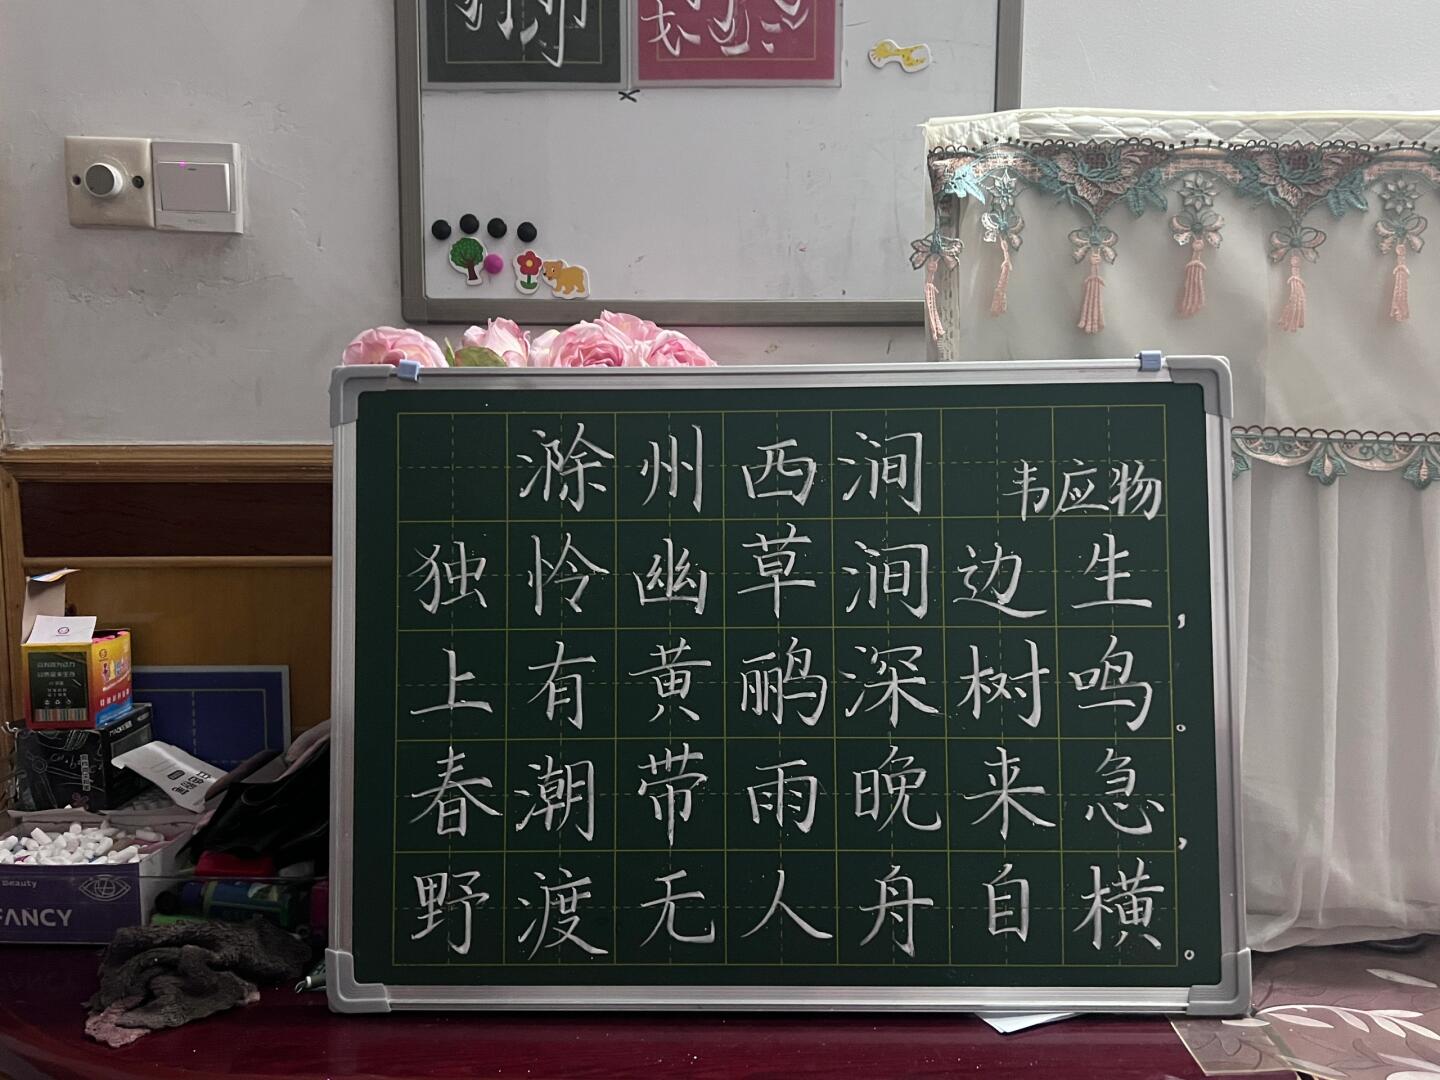 滁州西涧 韦应物
独怜幽草涧边生，
上有黄鹂深树鸣。
春潮带雨晚来急，
野渡无人舟自横。
Beauty
FANCY